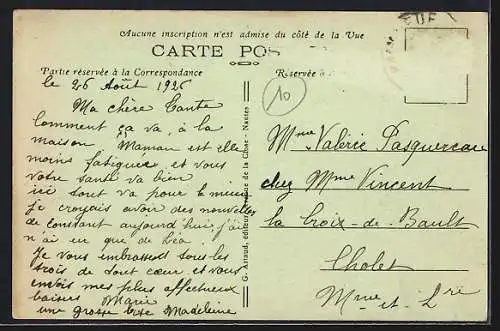 Aucune inscription n'est admise du côté de la Vue
CARTE POS
Partie réservée à la Correspondance
Réservée à
le 26 Août 1926
10
Ma chère Tante
Comment ça va, à la
maison Maman est elle
moins fatiguée et vous
votre santé va bien
ici tout va pour le mieux
je croyais avoir des nouvelles
de constant aujourd'hui j'ai
n'ai eu que de Léa.
Je vous embrassons tous les
trois de tout cœur et vous
envois mes plus affectueux
baises Marie
une grosse bise Madeleine
G. Artaud, éditeur, de la Close - Nantes
Mme Valérie Pasquereau
chez Mme Vincent
la Croix-de-Bault
Cholet
Mme-et-Lre